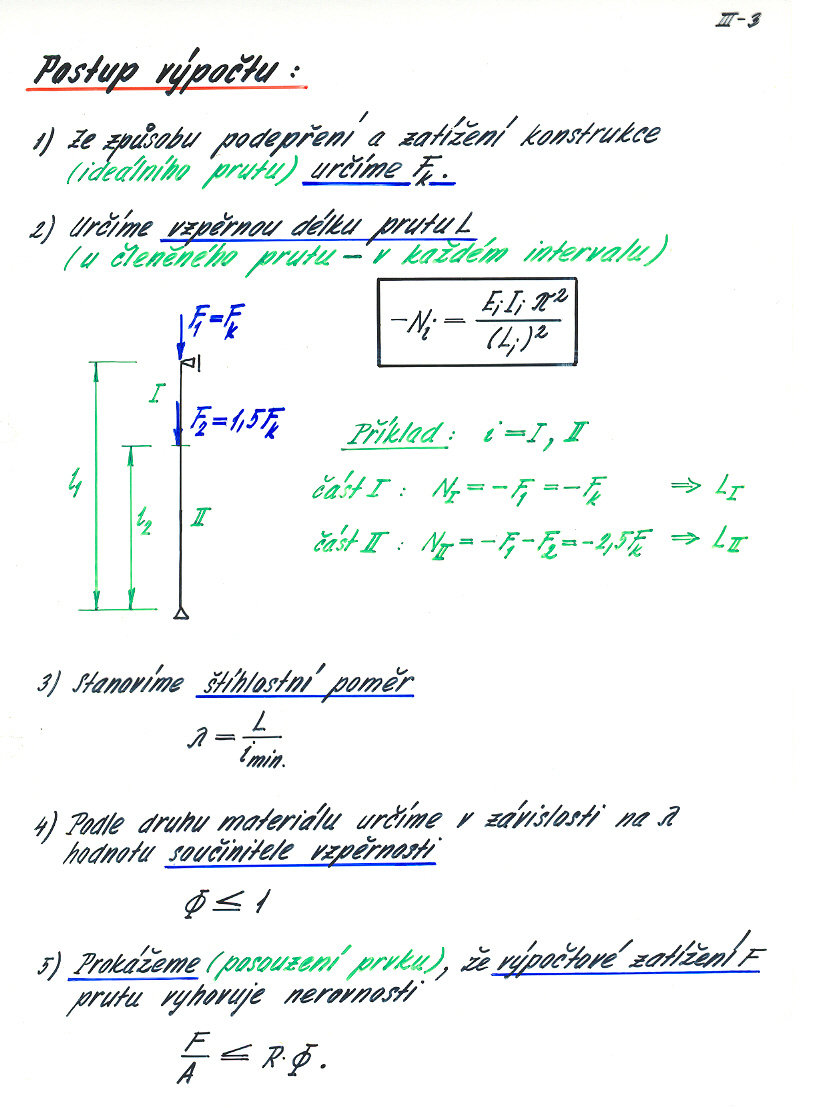 III-3
Postup výpočtu :
1) Ze způsobu podepření a zatížení konstrukce
(ideálního prutu) určíme Fₖ.
2) Určíme vzpěrnou délku prutu L
(u členěného prutu – v každém intervalu)
-Nᵢ = EᵢIᵢπ² / (Lᵢ)²
F₁=Fₖ
I
F₂=1,5Fₖ
l₁
l₂
II
Příklad : i = I, II
část I : N_I = -F₁ = -Fₖ ⇒ L_I
část II : N_II = -F₁-F₂ = -2,5Fₖ ⇒ L_II
3) Stanovíme štíhlostní poměr
λ = L / i_min.
4) Podle druhu materiálu určíme v závislosti na λ
hodnotu součinitele vzpěrnosti
Φ ≤ 1
5) Prokážeme (posouzení prvku), že výpočtové zatížení F
prutu vyhovuje nerovnosti
F / A ≤ R·Φ.